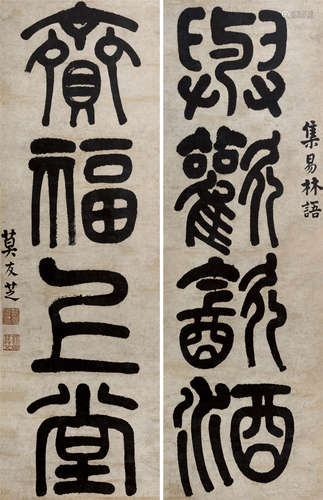 集易林語
與歡飲酒
齎福上堂
莫友芝